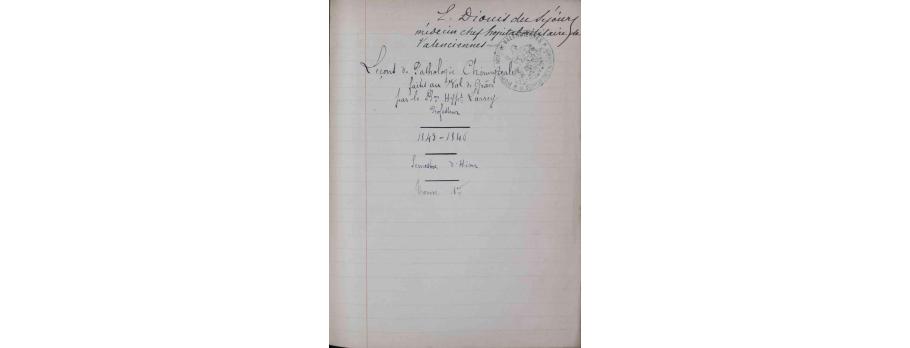 L. Dionis du Séjour
médecin chef hopital militaire de
Valenciennes
Leçons de Pathologie Chirurgicale
faites au Val de Grâce
par le Bon Hippte Larrey
Professeur
1845-1846
Semestre d'Hiver
Tome 1er